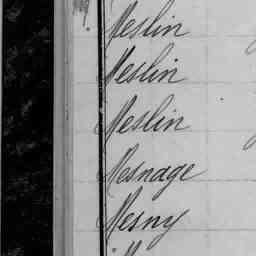 Meslin
Meslin
Meslin
Mesnage
Mesny